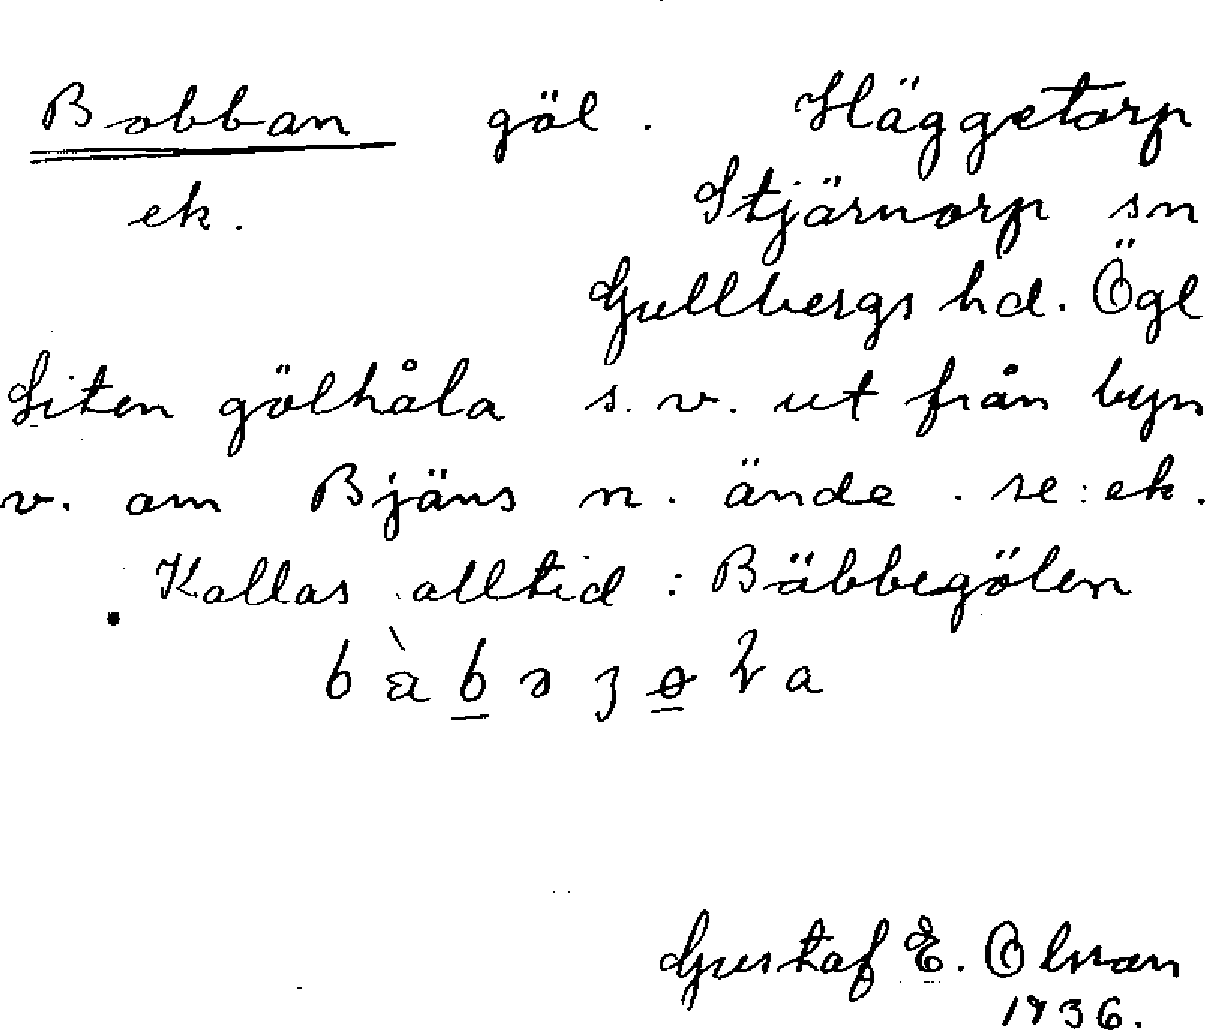 Bobban göl. Häggetorp
ek. Stjärnorp sn
Gullbergs hd. Ögl
Liten gölhåla s.v. ut från byn
v. om Bjäns n. ände. se: ek.
Kallas alltid: Bäbbegölen
Gustaf E. Olsson
1936.